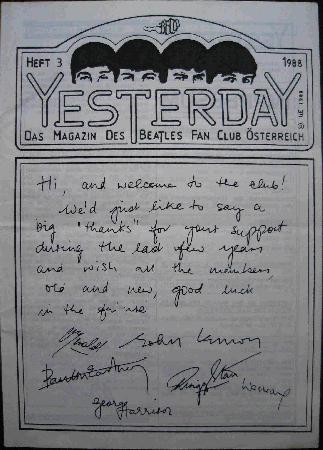 HEFT 3 1988
YESTERDAY
DAS MAGAZIN DES BEATLES FAN CLUB ÖSTERREICH
Hi, and welcome to the club!
We'd just like to say a
big "thanks" for your support
during the last few years
and wish all the members,
old and new, good luck
in the
John Lennon
Paul McCartney Ringo Starr
George
Harrison